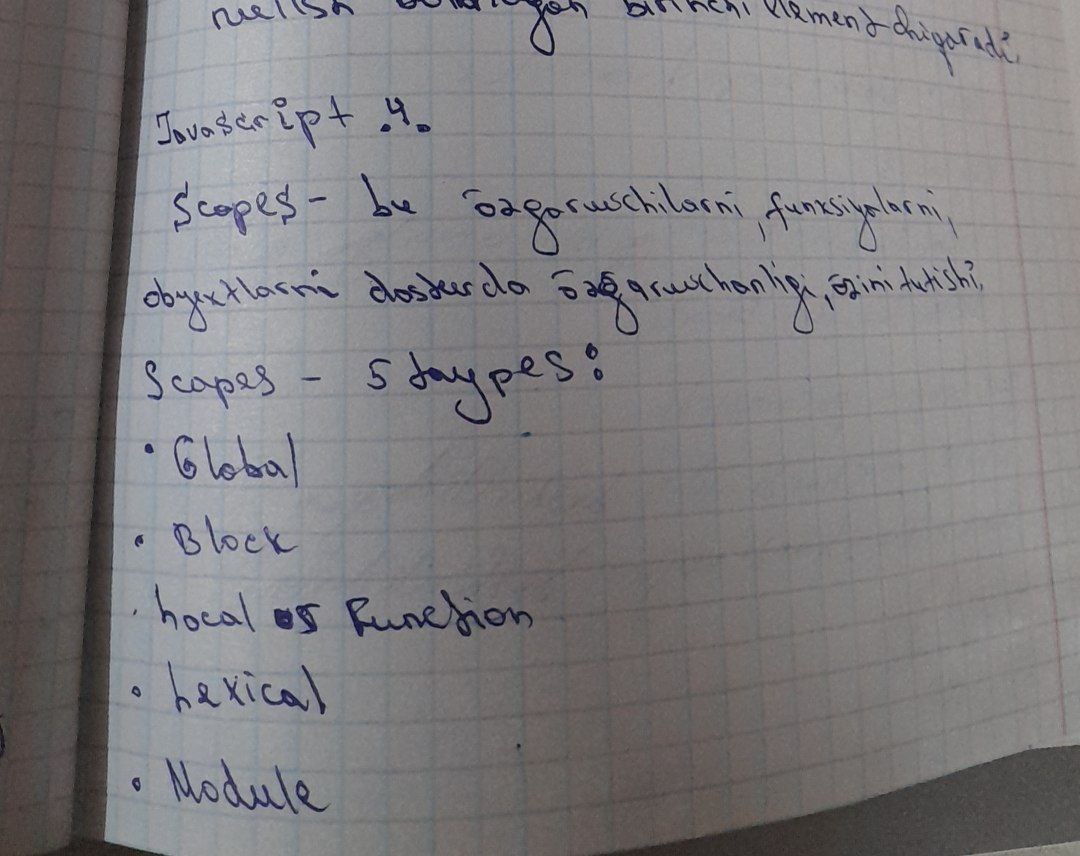 birinchi element chiqaradi.
Javascript .4.
Scopes - bu ōzgaruvchilarni, funksiyalarni,
obyektlarni dasturda ōzgaruvchanligi, ōzini tutishi.
Scopes - 5 taypes:
• Global
• Block
• Local or Function
• Lexical
• Module